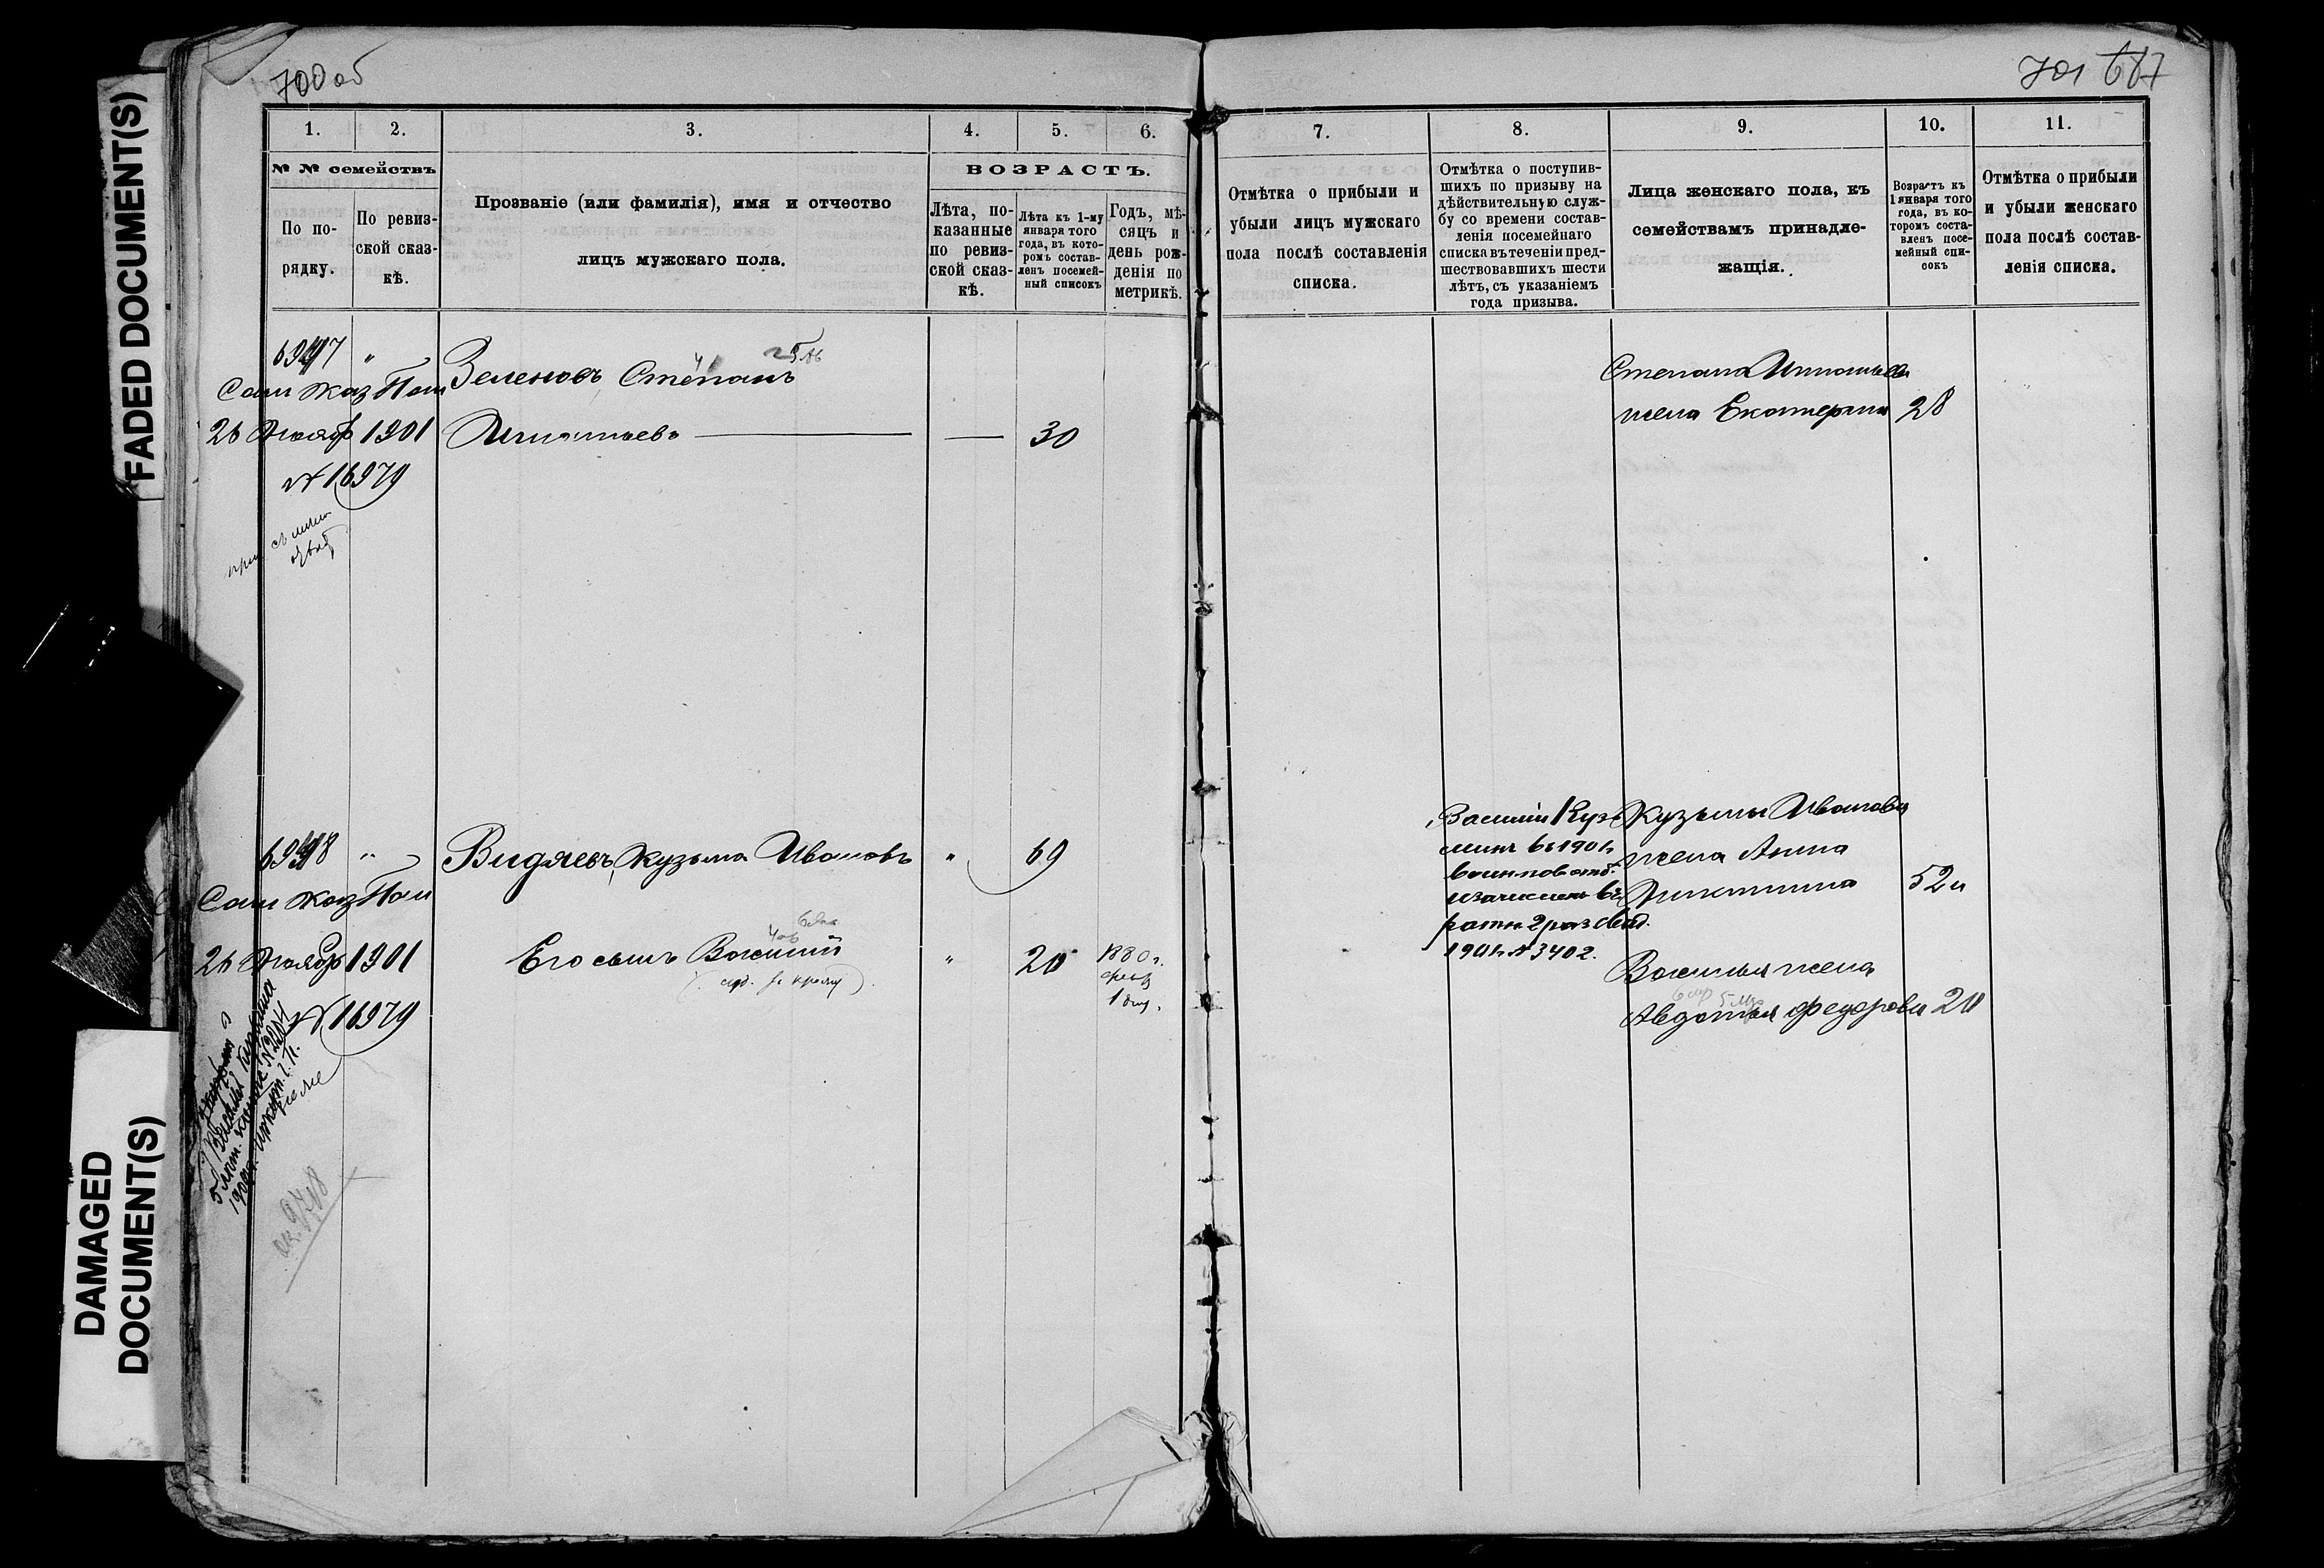 FADED DOCUMENT(S)
DAMAGED
DOCUMENT(S)
700 об
701 687
1.
2.
3.
4.
5.
6.
7.
8.
9.
10.
11.
№ № семействъ
По по-
рядку.
По ревиз-
ской сказ-
кѣ.
Прозваніе (или фамилія), имя и отчество
лицъ мужскаго пола.
ВОЗРАСТЪ.
Лѣта, по-
казанные
по ревиз-
ской сказ-
кѣ.
Лѣта къ 1-му
января того
года, въ кото-
ромъ состав-
ленъ посемей-
ный списокъ
Годъ, мѣ-
сяцъ и
день рож-
денія по
метрикѣ.
Отмѣтка о прибыли и
убыли лицъ мужскаго
пола послѣ составленія
списка.
Отмѣтка о поступив-
шихъ по призыву на
дѣйствительную служ-
бу со времени состав-
ленія посемейнаго
списка въ теченіи пред-
шествовавшихъ шести
лѣтъ, съ указаніемъ
года призыва.
Лица женскаго пола, къ
семействамъ принадле-
жащія.
Возрастъ къ
1 января того
года, въ ко-
торомъ соста-
вленъ посе-
мейный спи-
сокъ
Отмѣтка о прибыли
и убыли женскаго
пола послѣ состав-
ленія списка.
"
Сам Каз Пал
26 Ноябр 1901
№ 16979
Зеленовъ Степанъ
Игнатьевъ — — 30
Степана Игнатьева
жена Екатерина 28
"
Сам Каз Пал
26 Ноябр 1901
№ 16979
Видяевъ Кузьма Ивановъ " 69
Его сынъ Василий " 20 1880 г.
Василий Кузь
минъ въ 1901 г.
ратн. 2 раз
1901 г. № 3402.
Кузьмы Иванова
жена Анна
Никитина 52
Василья жена
Авдотья Федорова 20